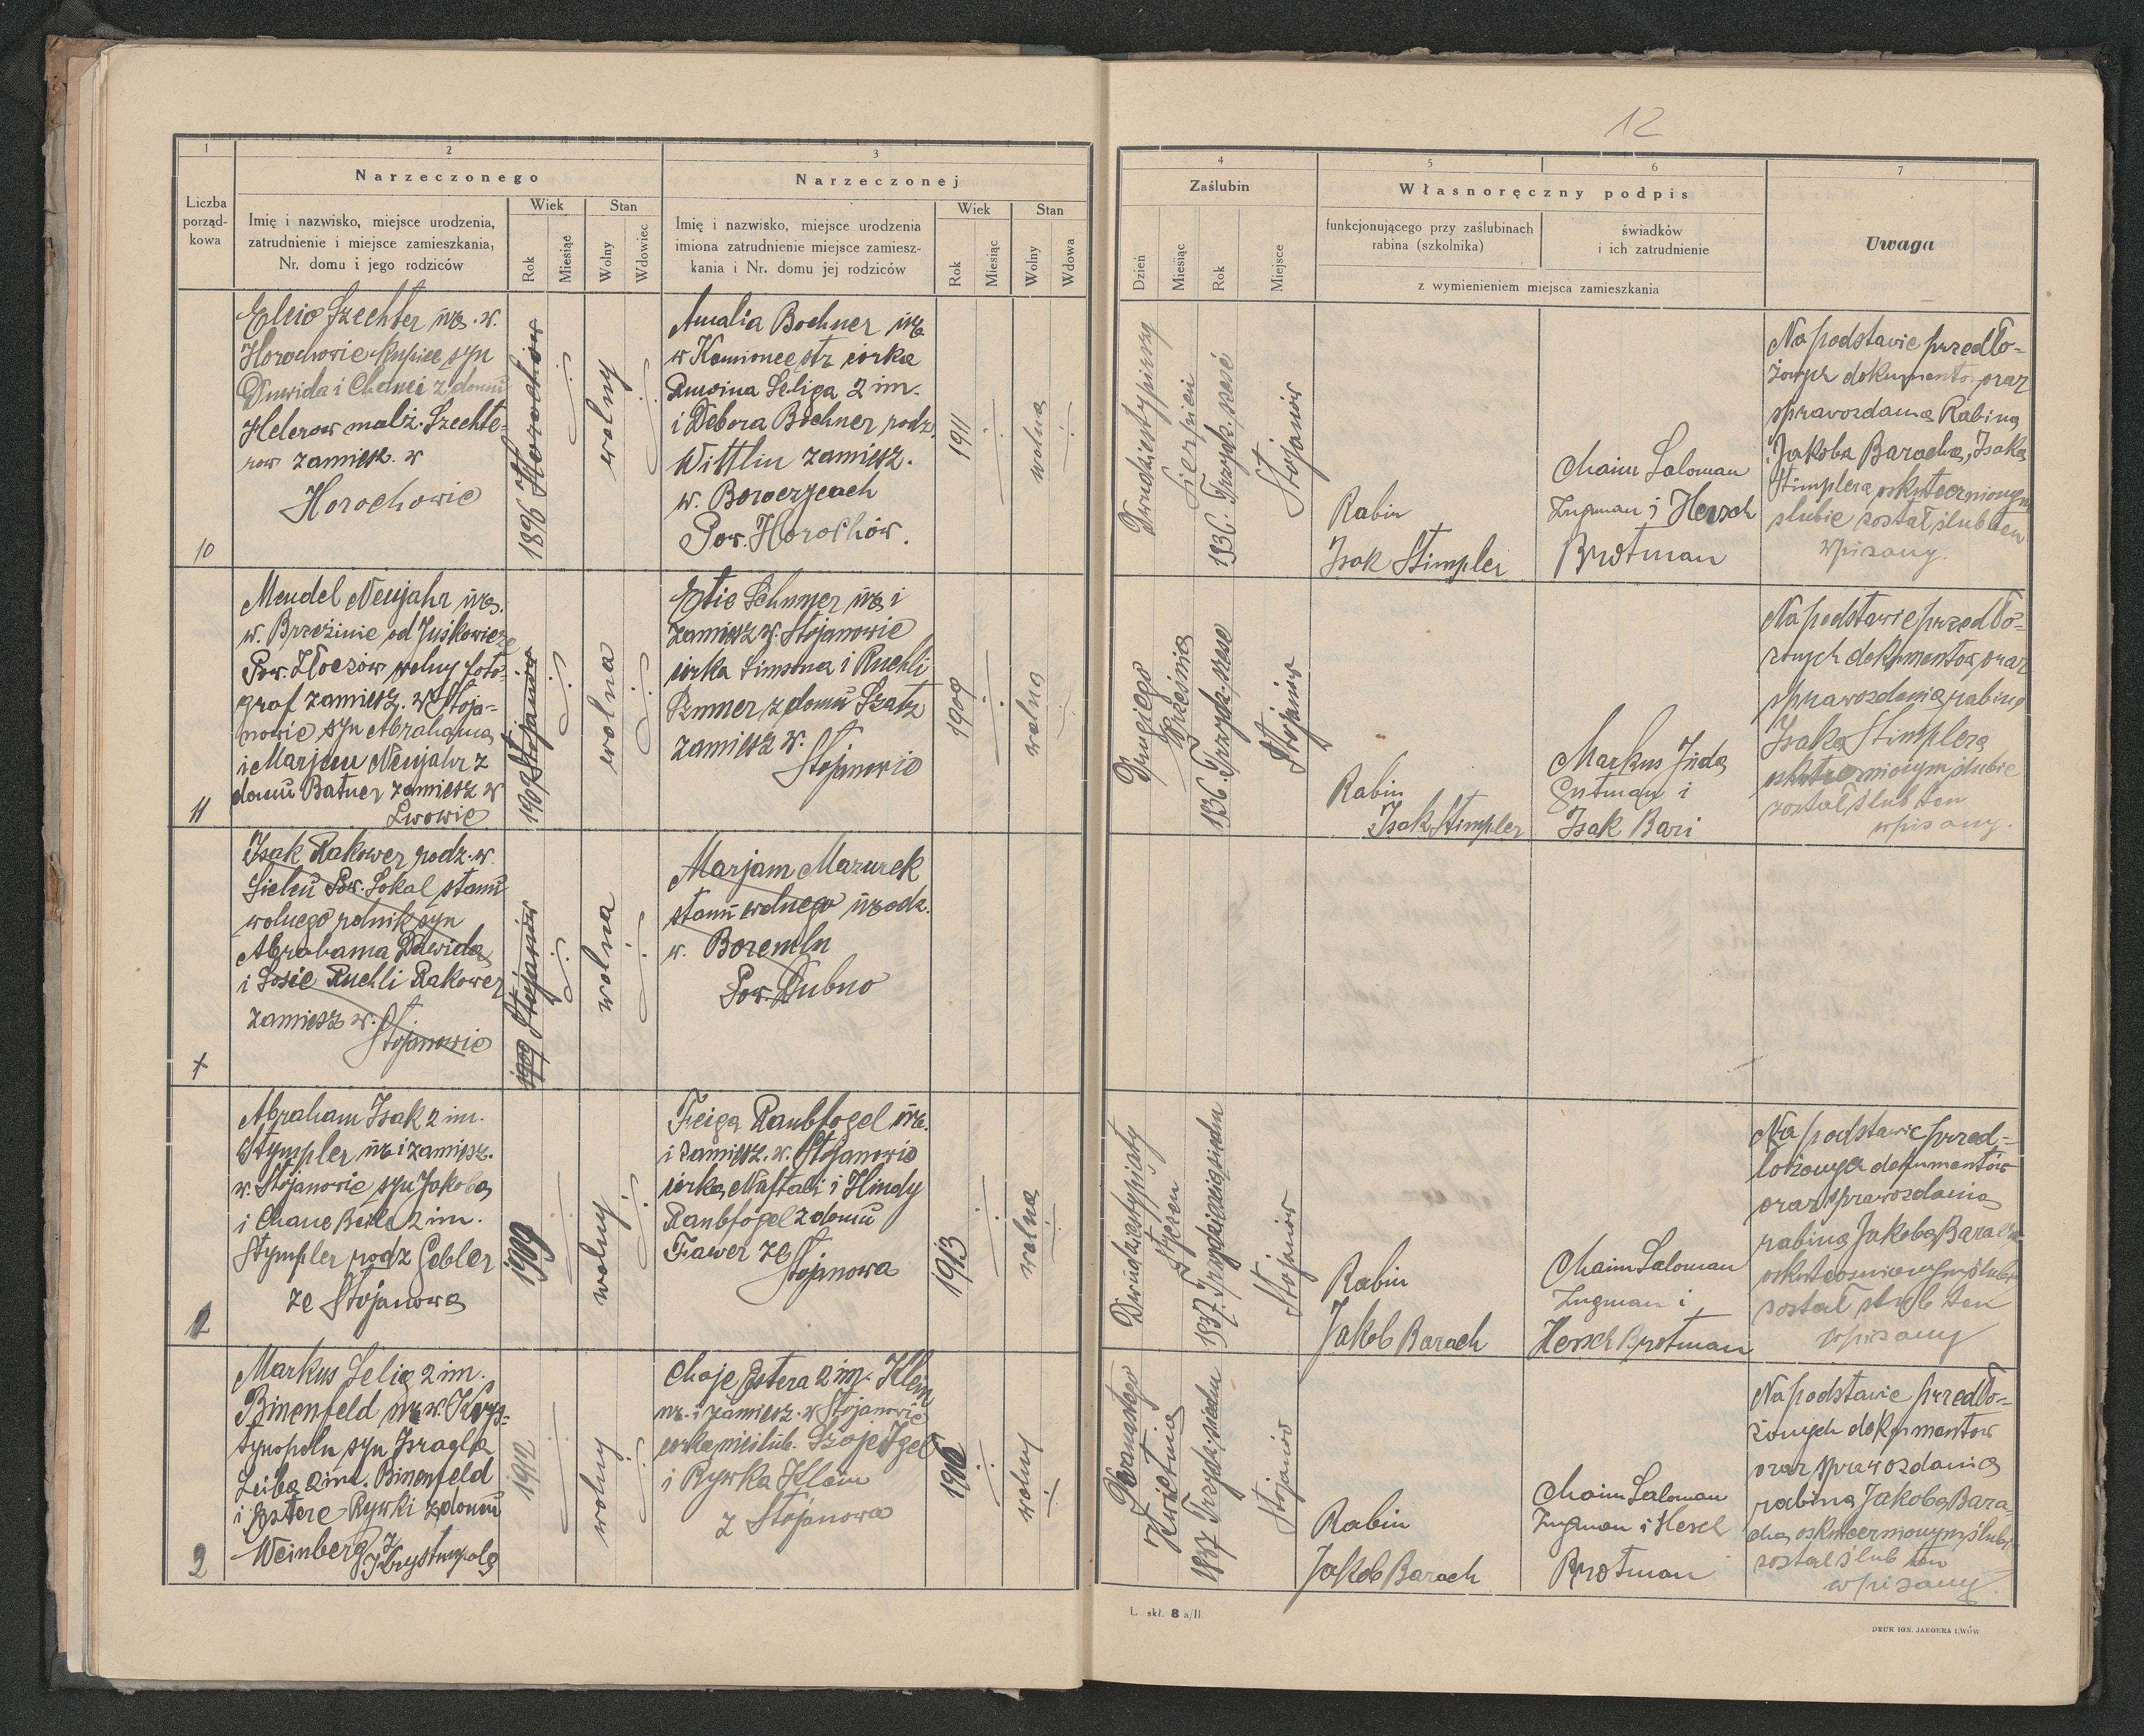 12
1
2
Narzeczonego
Liczba
porząd-
kowa
Imię i nazwisko, miejsce urodzenia,
zatrudnienie i miejsce zamieszkania,
Nr. domu i jego rodziców
Wiek
Rok
Miesiąc
Stan
Wolny
Wdowiec
3
Narzeczonej
Imię i nazwisko, miejsce urodzenia
imiona zatrudnienie miejsce zamiesz-
kania i Nr. domu jej rodziców
Wiek
Rok
Miesiąc
Stan
Wolny
Wdowa
4
Zaślubin
Dzień
Miesiąc
Rok
Miejsce
5
6
Własnoręczny podpis
funkcjonującego przy zaślubinach
rabina (szkolnika)
świadków
i ich zatrudnienie
z wymienieniem miejsca zamieszkania
7
Uwaga
10
Szechter urz. w.
Horochowie kupiec syn
Duwida i Chanci z domu
Helerow małż. Szechte-
row zamiesz. w
Horochowie
1896 Horochów
wolny
Amalia Bochner urz
w Kamionce str córka
Seliga 2 im.
i Debora Bochner rodz.
Wittlin zamiesz.
w.
Pow. Horochów.
1911
wolna
Dwudziestypierwszy
Sierpień
1936. Trzydz. sześć
Stojanów
Rabin
Isak Stimpler
Chaim Saloman
Zugman i Hersch
Brotman
Na podstawie przedło-
żonych dokumento oraz
sprawozdania Rabina
Jakoba Baracha, Isaka
Stimplera oskutecznionym
ślubie został ślub ten
wpisany.
11
Mendel Neujahr urz.
w. Brzezinie od
Pow. Złoczów wolny foto-
graf zamiesz. w Stoja-
nowie syn Abrahama
i Marjem Neujahr z
domu Batner zamiesz w
Lwowie
1907 Stojanów
wolna
Etie urz i
zamiesz w. Stojanowie
córka Simsona i Ruchli
z domu Szatz
zamiesz w.
Stojanowie
1909
wolna
Drugiego
Września
1936. Trzydz. sześć
Stojanów
Rabin
Isak Stimpler
Markus Juda
Gutman i
Isak Bari
Na podstawie przedło-
żonych dokumentow oraz
sprawozdania rabina
Isaka Stimplera
oskutecznionym ślubie
został ślub ten
wpisany.
Isak Rakower rodz. w.
Pow. Sokal stanu
wolnego rolnik syn
Abrahama Dawida
i Sosie Ruchli Rakower
zamiesz w.
Stojanowie
1909 Stojanów
wolna
Marjam Mazurek
stanu wolnego urodz.
w. Boremlu
Pow. Dubno
1
Abraham Isak 2 im.
Stympler urz i zamiesz.
w. Stojanowie syn Jakoba
i Chane Beile 2 im.
Stympler rodz Gebler
ze Stojanowa
1909
wolny
Feiga Raubfogel urz.
i zamiesz. w. Stojanowie
córka Naftali i Hindy
Raubfogel z domu
Fawer ze
Stojanowa
1913
wolna
Dwudziestypiąty
Styczeń
1937. Trzydzieścisiedm
Stojanów
Rabin
Jakob Barach
Chaim Saloman
Zugman i
Hersch Brotman
Na podstawie przed-
łożonych dokumentów
oraz sprawozdania
rabina Jakoba Baracha
oskutecznionym ślubie
został ślub ten
wpisany
2
Markus Selig 2 im.
Binenfeld urz w. Krys-
tynopolu syn Israela
Leiba 2 im. Binenfeld
i Estere-Rywki z domu
Weinberg z
Krystynopola
1912
wolny
Chaje Estera 2 im. Klein
urz. i zamiesz. w Stojanowie
córka nieślub. Szoje Igel
i Rywka Klein
z Stojanowa
1906
wolny
Kwietnia
1937 Trzydz. siedm
Stojanów
Rabin
Jakob Barach
Chaim Saloman
Zugman i Hersch
Brotman
Na podstawie przedło-
żonych dokumentow
oraz sprawozdania
rabina Jakoba Bara-
cha oskutecznionym ślubie
został ślub ten
wpisany.
L. skł. 8 a/II.
DRUK IGN. JAEGERA LWÓW